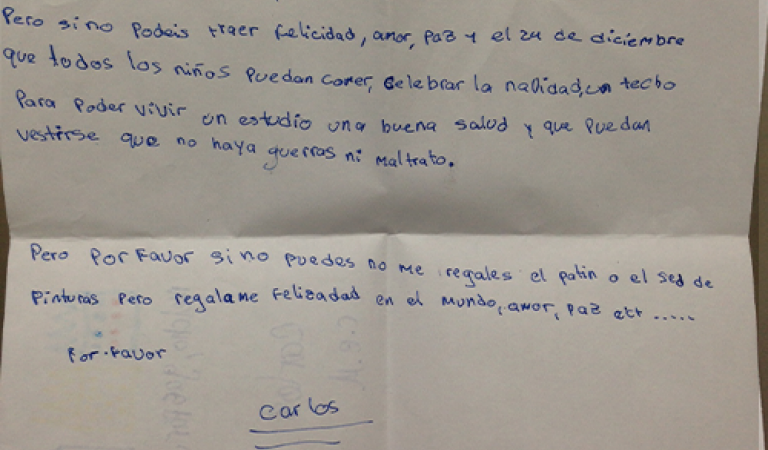 Pero si no Podeis traer felicidad, amor, paz y el 24 de diciembre
que todos los niños puedan comer, celebrar la nalidad, un techo
Para Poder vivir un estudio una buena salud y que puedan
vestirse que no haya guerras ni maltrato.
Pero Por Favor si no puedes no me regales el patin o el sed de
Pinturas pero regalame Felizadad en el mundo, amor, paz ect .....
For-Favor
carlos